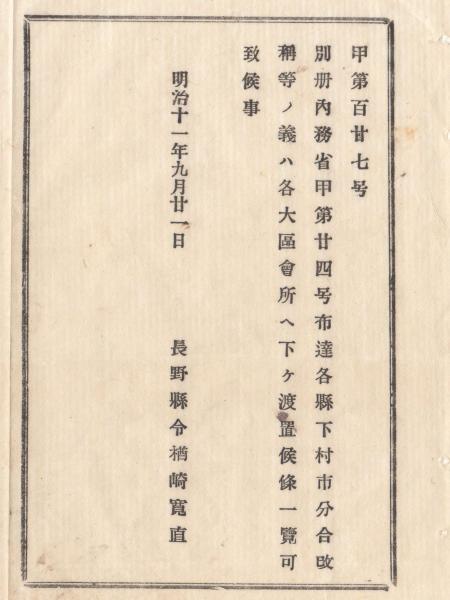 甲第百廿七号
別册內務省甲第廿四号布達各縣下村市分合改
稱等ノ義ハ各大區會所ヘ下ケ渡置候條一覽可
致候事
明治十一年九月廿一日
長野縣令楢崎寬直